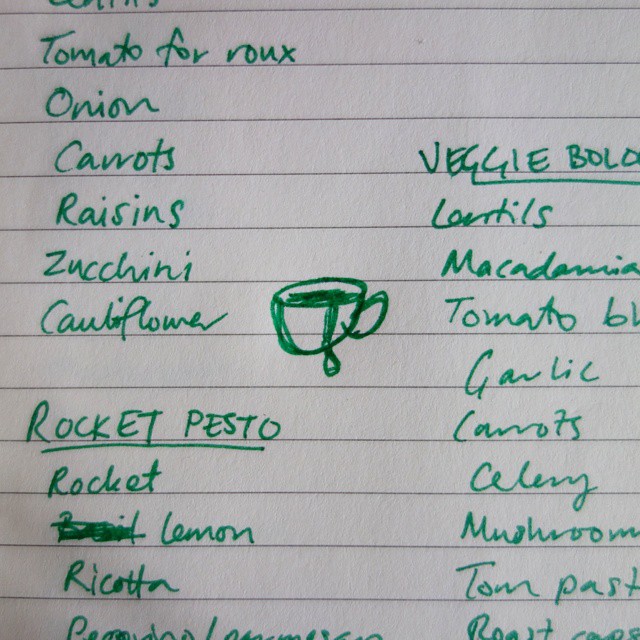 Tomato for roux
Onion
Carrots
Raisins
Zucchini
Cauliflower
ROCKET PESTO
Rocket
lemon
Ricotta
VEGGIE BOLO
Lentils
Macadamia
Tomato
Garlic
Carrots
Celery
Mushroom
Tom past
Roast